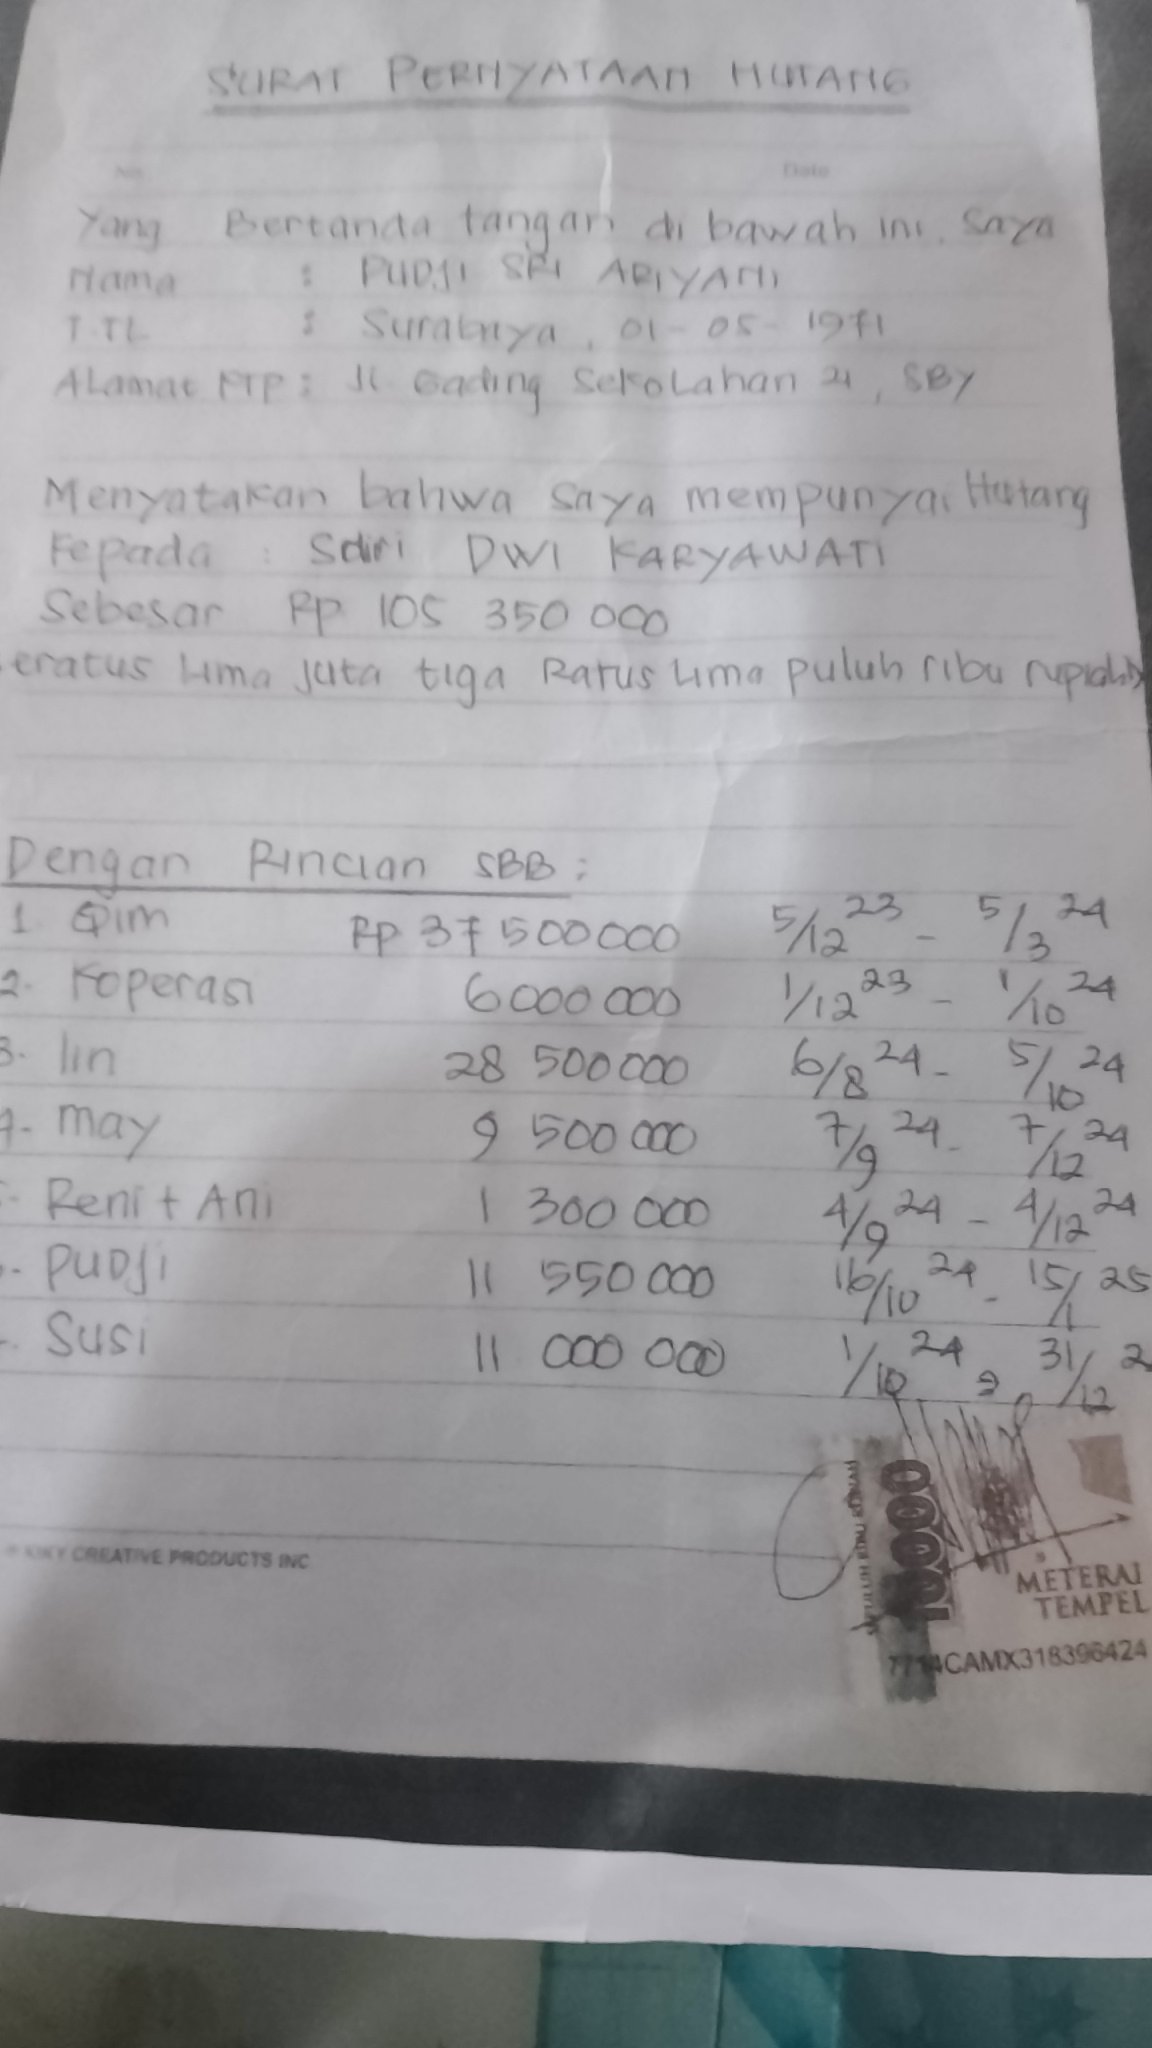 SURAT PERNYATAAN HUTANG
No.
Date
Yang Bertanda tangan di bawah ini, Saya
Nama : PUDJI SRI ARIYANI
T.TL : Surabaya, 01-05-1971
Alamat KTP : Jl. Gading Sekolahan 21, SBY
Menyatakan bahwa saya mempunyai Hutang
Kepada : Sdiri DWI KARYAWATI
Sebesar Rp 105 350 000
eratus Lima juta tiga Ratus Lima puluh ribu rupiah)
Dengan Rincian SBB :
1. Qim Rp 37 500 000 5/12 23 - 5/3 24
2. Koperasi 6 000 000 1/12 23 - 1/10 24
3. Iin 28 500 000 6/8 24 - 5/10 24
4. May 9 500 000 7/9 24 - 7/12 24
- Reni + Ani 1 300 000 4/9 24 - 4/12 24
- PUDJI 11 550 000 16/10 24 - 15/1 25
- Susi 11 000 000 1/10 24 31/12 2
KIKY CREATIVE PRODUCTS INC
10000
METERAI
TEMPEL
CAMX318396424